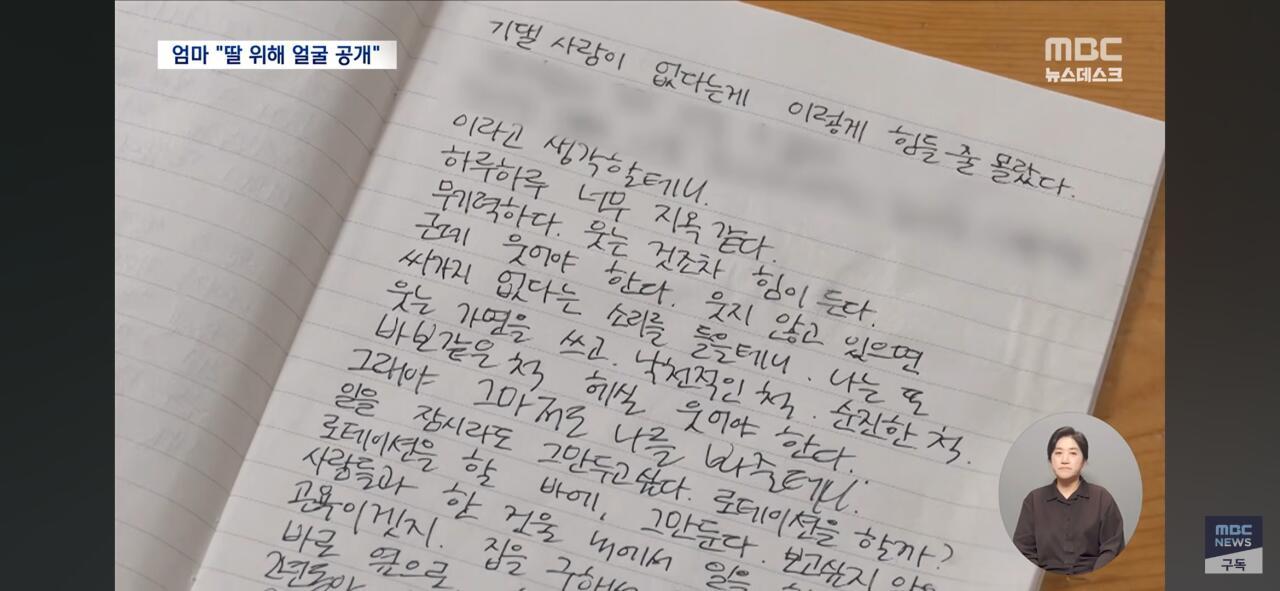 엄마 "딸 위해 얼굴 공개"
MBC
뉴스데스크
기댈 사람이 없다는게 이렇게 힘들 줄 몰랐다.
이라고 생각할테니.
하루하루 너무 지옥 같다.
무기력하다. 웃는 것조차 힘이 든다.
근데 웃어야 한다. 웃지 않고 있으면
싸가지 없다는 소리를 들을테니. 나는 또
웃는 가면을 쓰고. 낙천적인 척. 순진한 척.
바보같은 척 헤실 웃어야 한다.
그래야 그마저도 나를 봐줄테니.
일을 잠시라도 그만두고싶다. 로테이션을 할까?
로테이션을 할 바에, 그만둔다. 보고싶지
사람들과 한 건물 내에서 일을
고욕이겠지. 집을
바로 옆으로
MBC
NEWS
구독